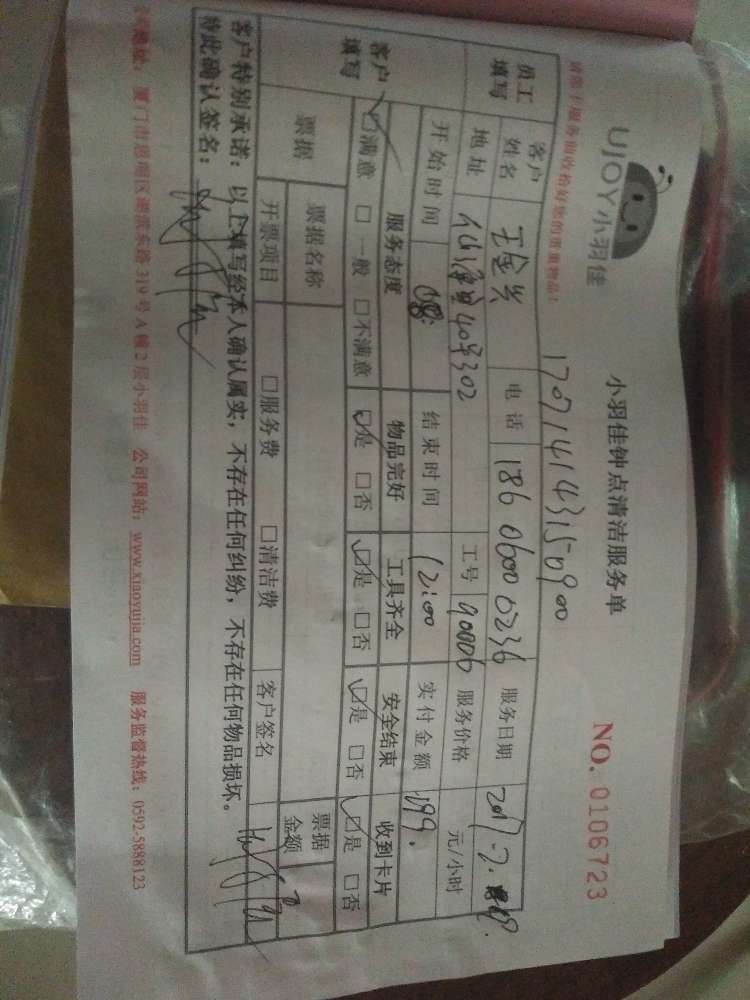 UJOY小羽佳
小羽佳钟点清洁服务单
NO. 0106723
请在上服务前收拾好您的贵重物品!
员工填写 客户姓名 电话 186 0600 0236 服务日期
地址 40号302 工号 90006 服务价格 元/小时
开始时间 结束时间 12:00 实付金额 199.
客户填写 服务态度 物品完好 工具齐全 安全结束 收到卡片
☑满意 □一般 □不满意 ☑是 □否 ☑是 □否 ☑是 □否 ☑是 □否
票据 票据名称 票据金额
开票项目 □服务费 □清洁费 客户签名
客户特别承诺:以上填写经本人确认属实,不存在任何纠纷,不存在任何物品损坏。
特此确认签名:
公司地址:厦门市思明区湖滨东路319号A幢2层小羽佳 公司网站:www.xiaoyujia.com 服务监督热线:0592-5888123